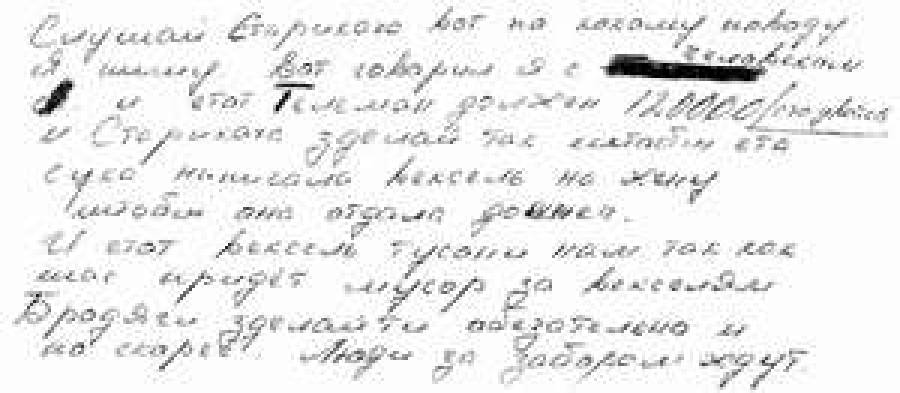 Слушай Старикаю вот по какому поводу
Я пишу. Вот говорил я с человеком
и этот Гелеман должен 120000/сто двадца
и Старикаю зделай так штабы ета
сука написала вексель на жену
штобы она отдала должен.
И етот вексель тусани нам так как
щас придет мусор за векселям
Бродяги зделайти обезательно и
по скорее. Люди за Забором ждут.